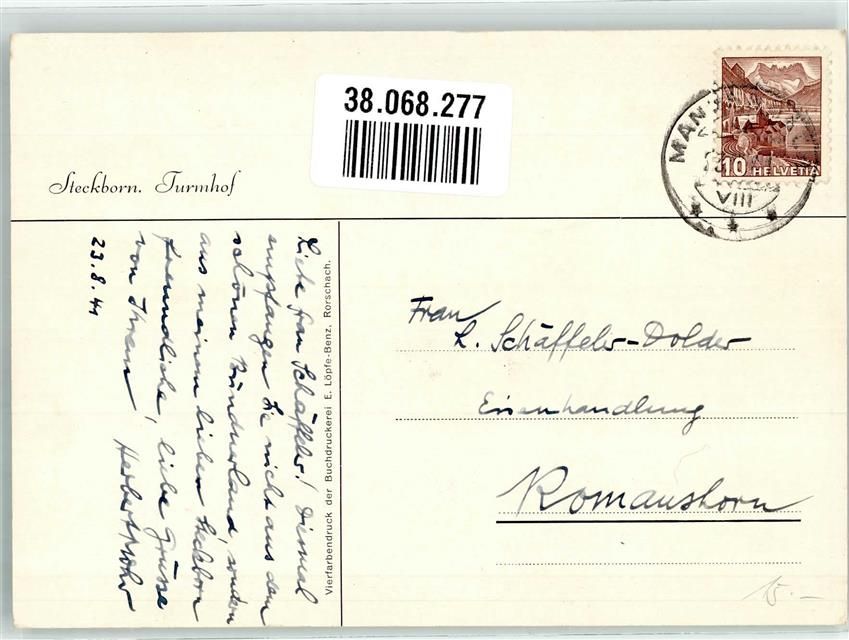 38.068.277
Steckborn. Turmhof
MAN
VIII
10 HELVETIA
Liebe Frau Schäffeler! Diesmal
empfangen Sie nicht aus dem
schönen Bündnerland, sondern
aus meinem lieben Steckborn
freundliche, liebe Grüsse
von Ihrem Herbert
23.8.41
Vierfarbendruck der Buchdruckerei E. Löpfe-Benz, Rorschach.
Frau
L. Schäffeler-Dolder
Eisenhandlung
Romanshorn
15.-